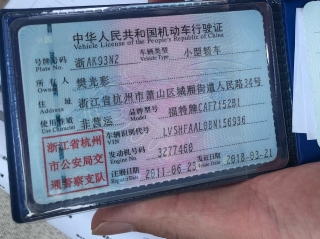 中华人民共和国机动车行驶证
Vehicle License of the People's Republic of China
号牌号码 浙AK93N2 车辆类型 小型轿车
Plate No. Vehicle Type
所有人 樊光彩
Owner
住址 浙江省杭州市萧山区城厢街道人民路34号
Address
使用性质 非营运 品牌型号 福特牌CAF7152B1
Use Character Model
浙江省杭州市公安局交通警察支队
车辆识别代号 LVSHFAAL0BN156936
VIN
发动机号码 3277460
Engine No.
注册日期 2011-06-23 发证日期 2018-03-21
Register Date Issue Date